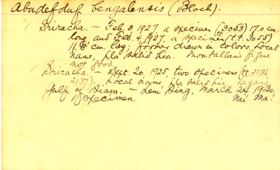 Abudefduf bengalensis (Bloch).
Sriracha. - Feb. 3, 1927, a specimen (3053) 17.0 cm.
long, and Feb. 4, 1927, a specimen (3055)
11.8 cm. long. Former drawn in colors. Local
name, pla Montalban's figure
not good.
Sriracha. - Sept. 20, 1925, two specimens (
2137). Local name pla
Gulf of Siam. - Lem Sing, March 24, 1930,
1 specimen.